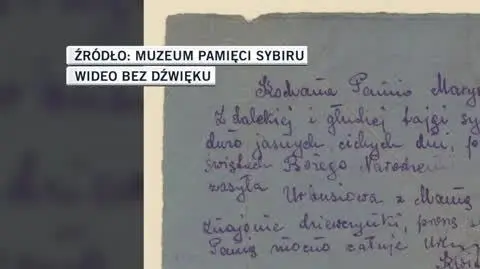 ŹRÓDŁO: MUZEUM PAMIĘCI SYBIRU
WIDEO BEZ DŹWIĘKU
Kochana Panno Mary
Z dalekiej i głuchej tajgi sy
dużo jasnych, cichych dni, p
świętach Bożego Narodzeni
zasyła Urbusiowa z Mamą
znajome dziewczynki, proszę
Panią mocno całuje